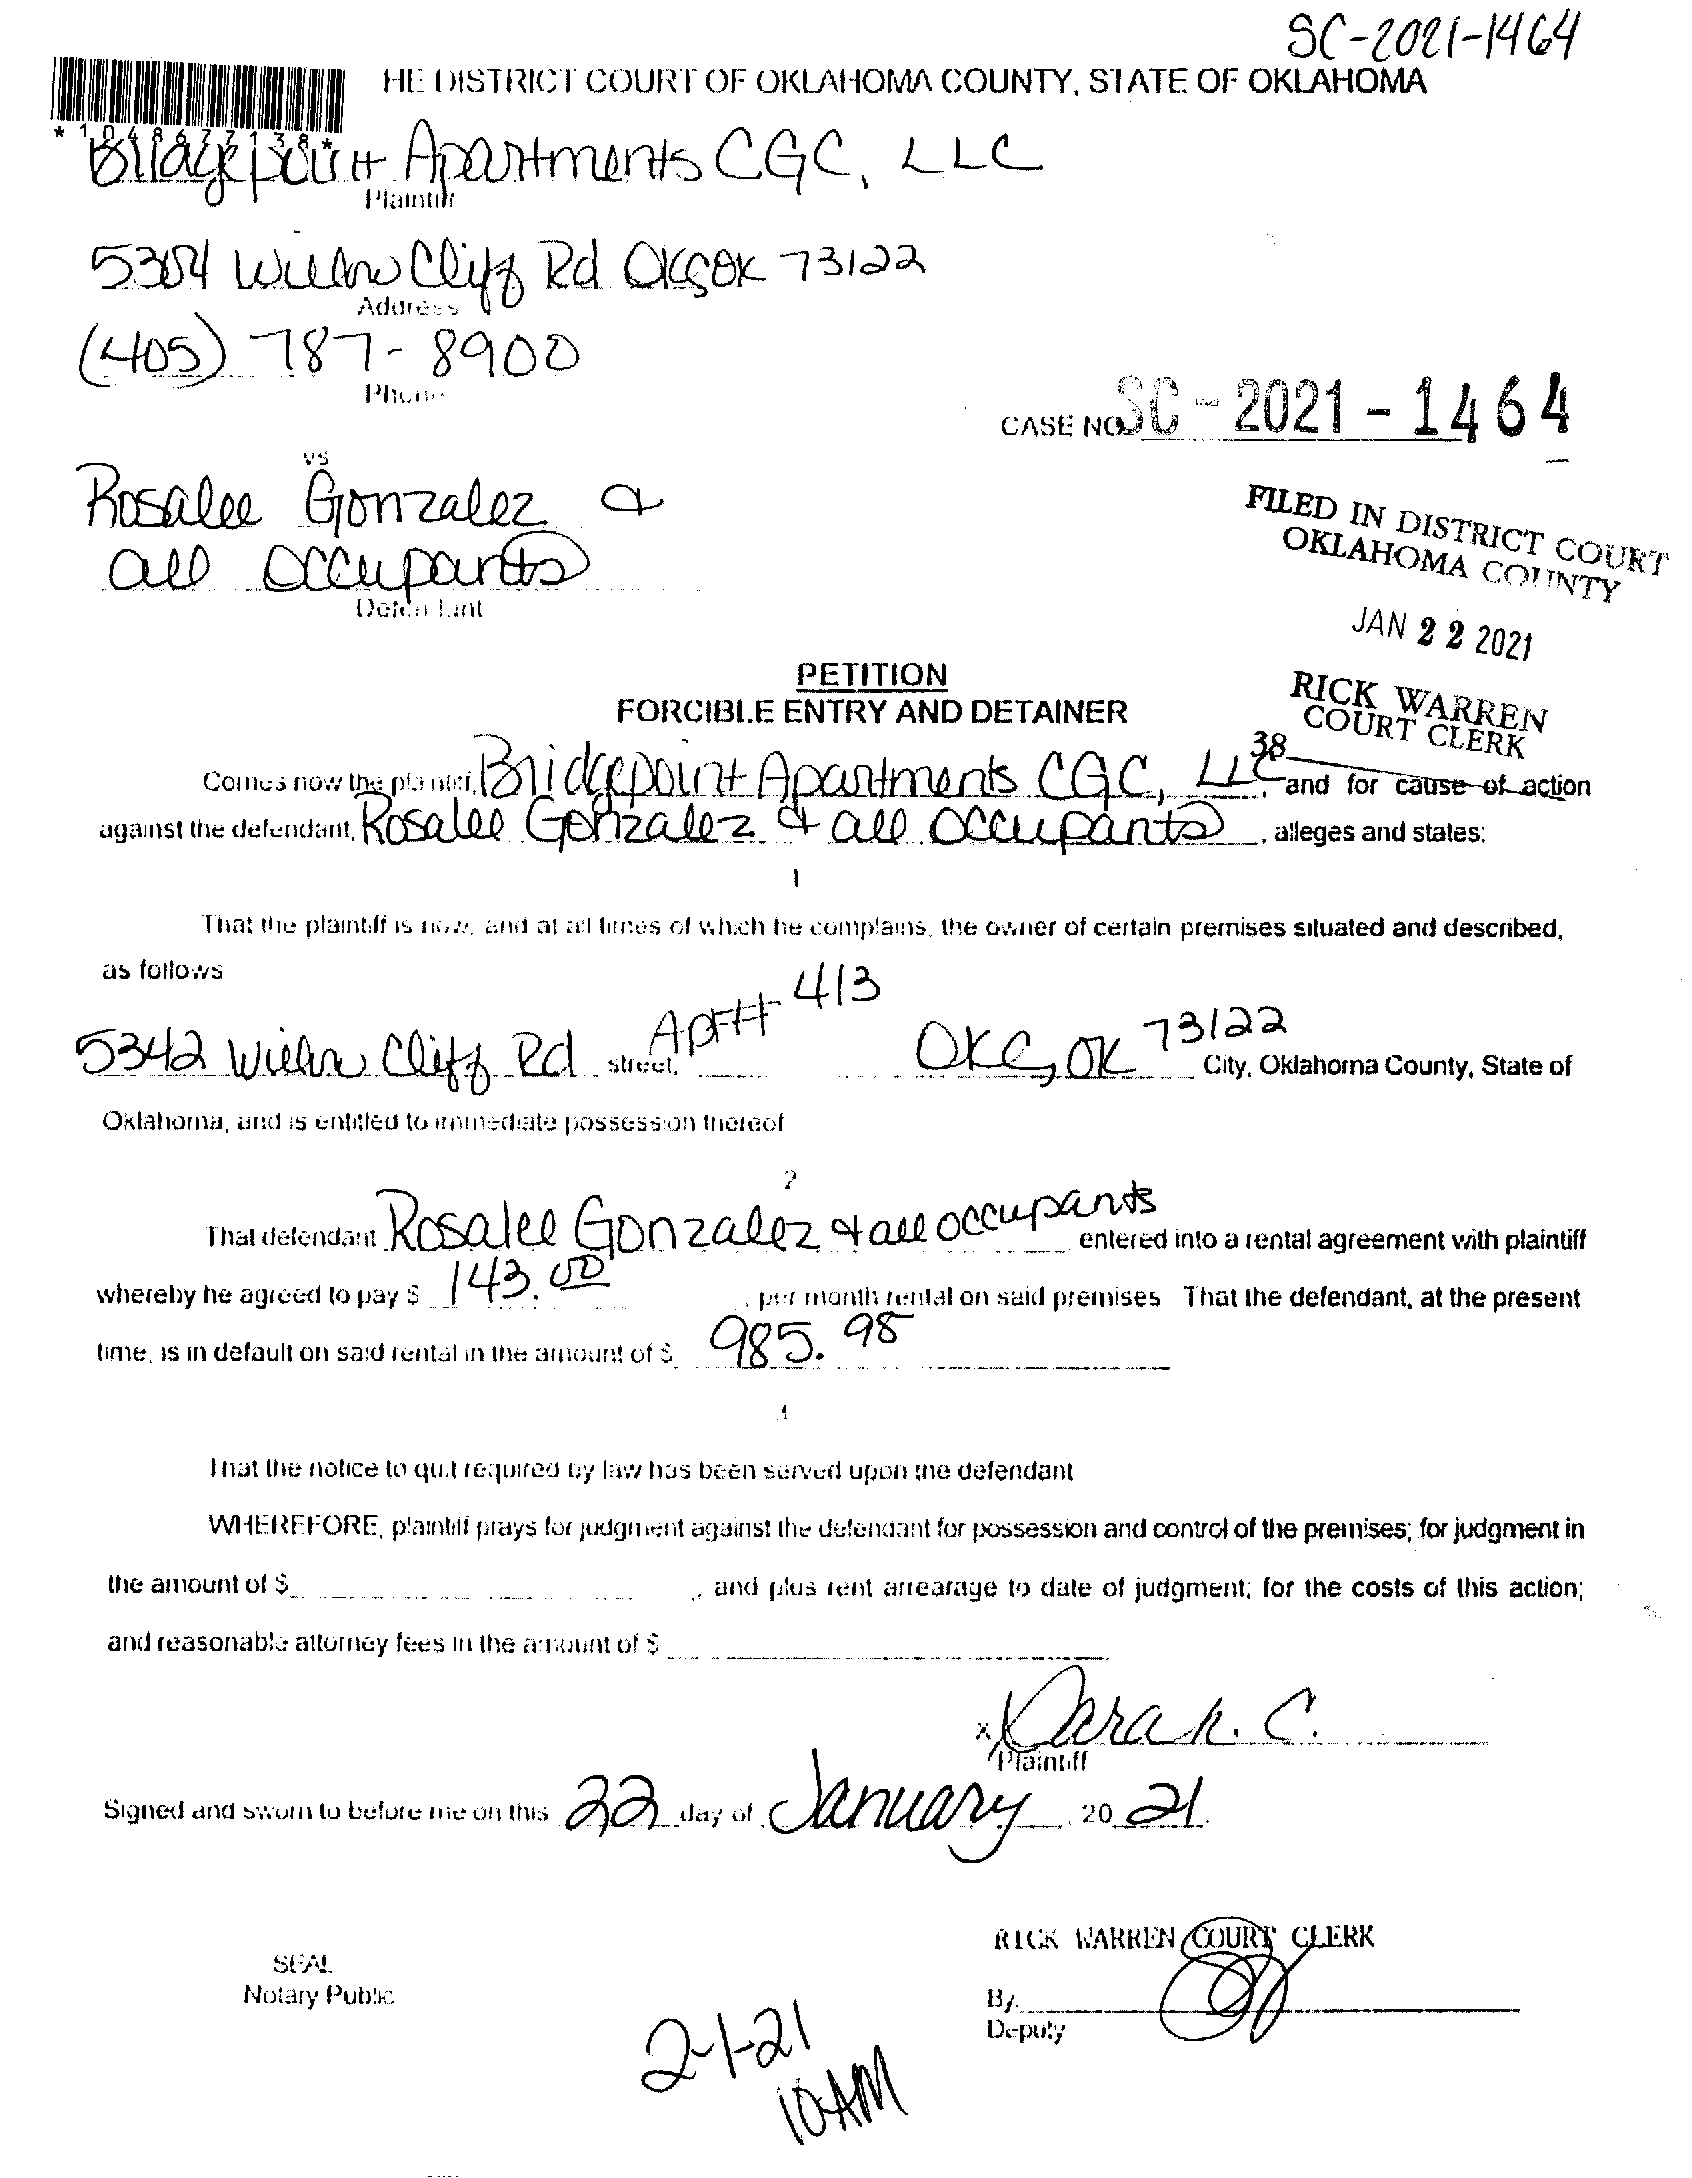 SC-2021-1464
HE DISTRICT COURT OF OKLAHOMA COUNTY, STATE OF OKLAHOMA
* 1 0 4 8 6 7 7 1 3 8 *
Bridgepoint Apartments CGC, LLC
Plaintiff
5304 Willow Cliff Rd OKC OK 73122
Address
(405) 787-8900
Phone
CASE NO. SC-2021-1464
vs
Rosalee Gonzalez &
all occupants
Defendant
FILED IN DISTRICT COURT
OKLAHOMA COUNTY
JAN 22 2021
RICK WARREN
COURT CLERK
38
PETITION
FORCIBLE ENTRY AND DETAINER
Comes now the plaintiff, Bridgepoint Apartments CGC, LLC, and for cause of action
against the defendant, Rosalee Gonzalez & all occupants, alleges and states:
1
That the plaintiff is now, and at all times of which he complains, the owner of certain premises situated and described,
as follows
5342 Willow Cliff Rd street, Apt# 413 OKC, OK 73122 City, Oklahoma County, State of
Oklahoma, and is entitled to immediate possession thereof
2
That defendant Rosalee Gonzalez & all occupants entered into a rental agreement with plaintiff
whereby he agreed to pay $ 143.00, per month rental on said premises That the defendant, at the present
time, is in default on said rental in the amount of $ 985.98
That the notice to quit required by law has been served upon the defendant
WHEREFORE, plaintiff prays for judgment against the defendant for possession and control of the premises; for judgment in
the amount of $ , and plus rent arrearage to date of judgment; for the costs of this action;
and reasonable attorney fees in the amount of $
x
Plaintiff
Signed and sworn to before me on this 22 day of January, 20 21.
RICK WARREN COURT CLERK
SEAL
Notary Public
By
Deputy
2-1-21
10AM